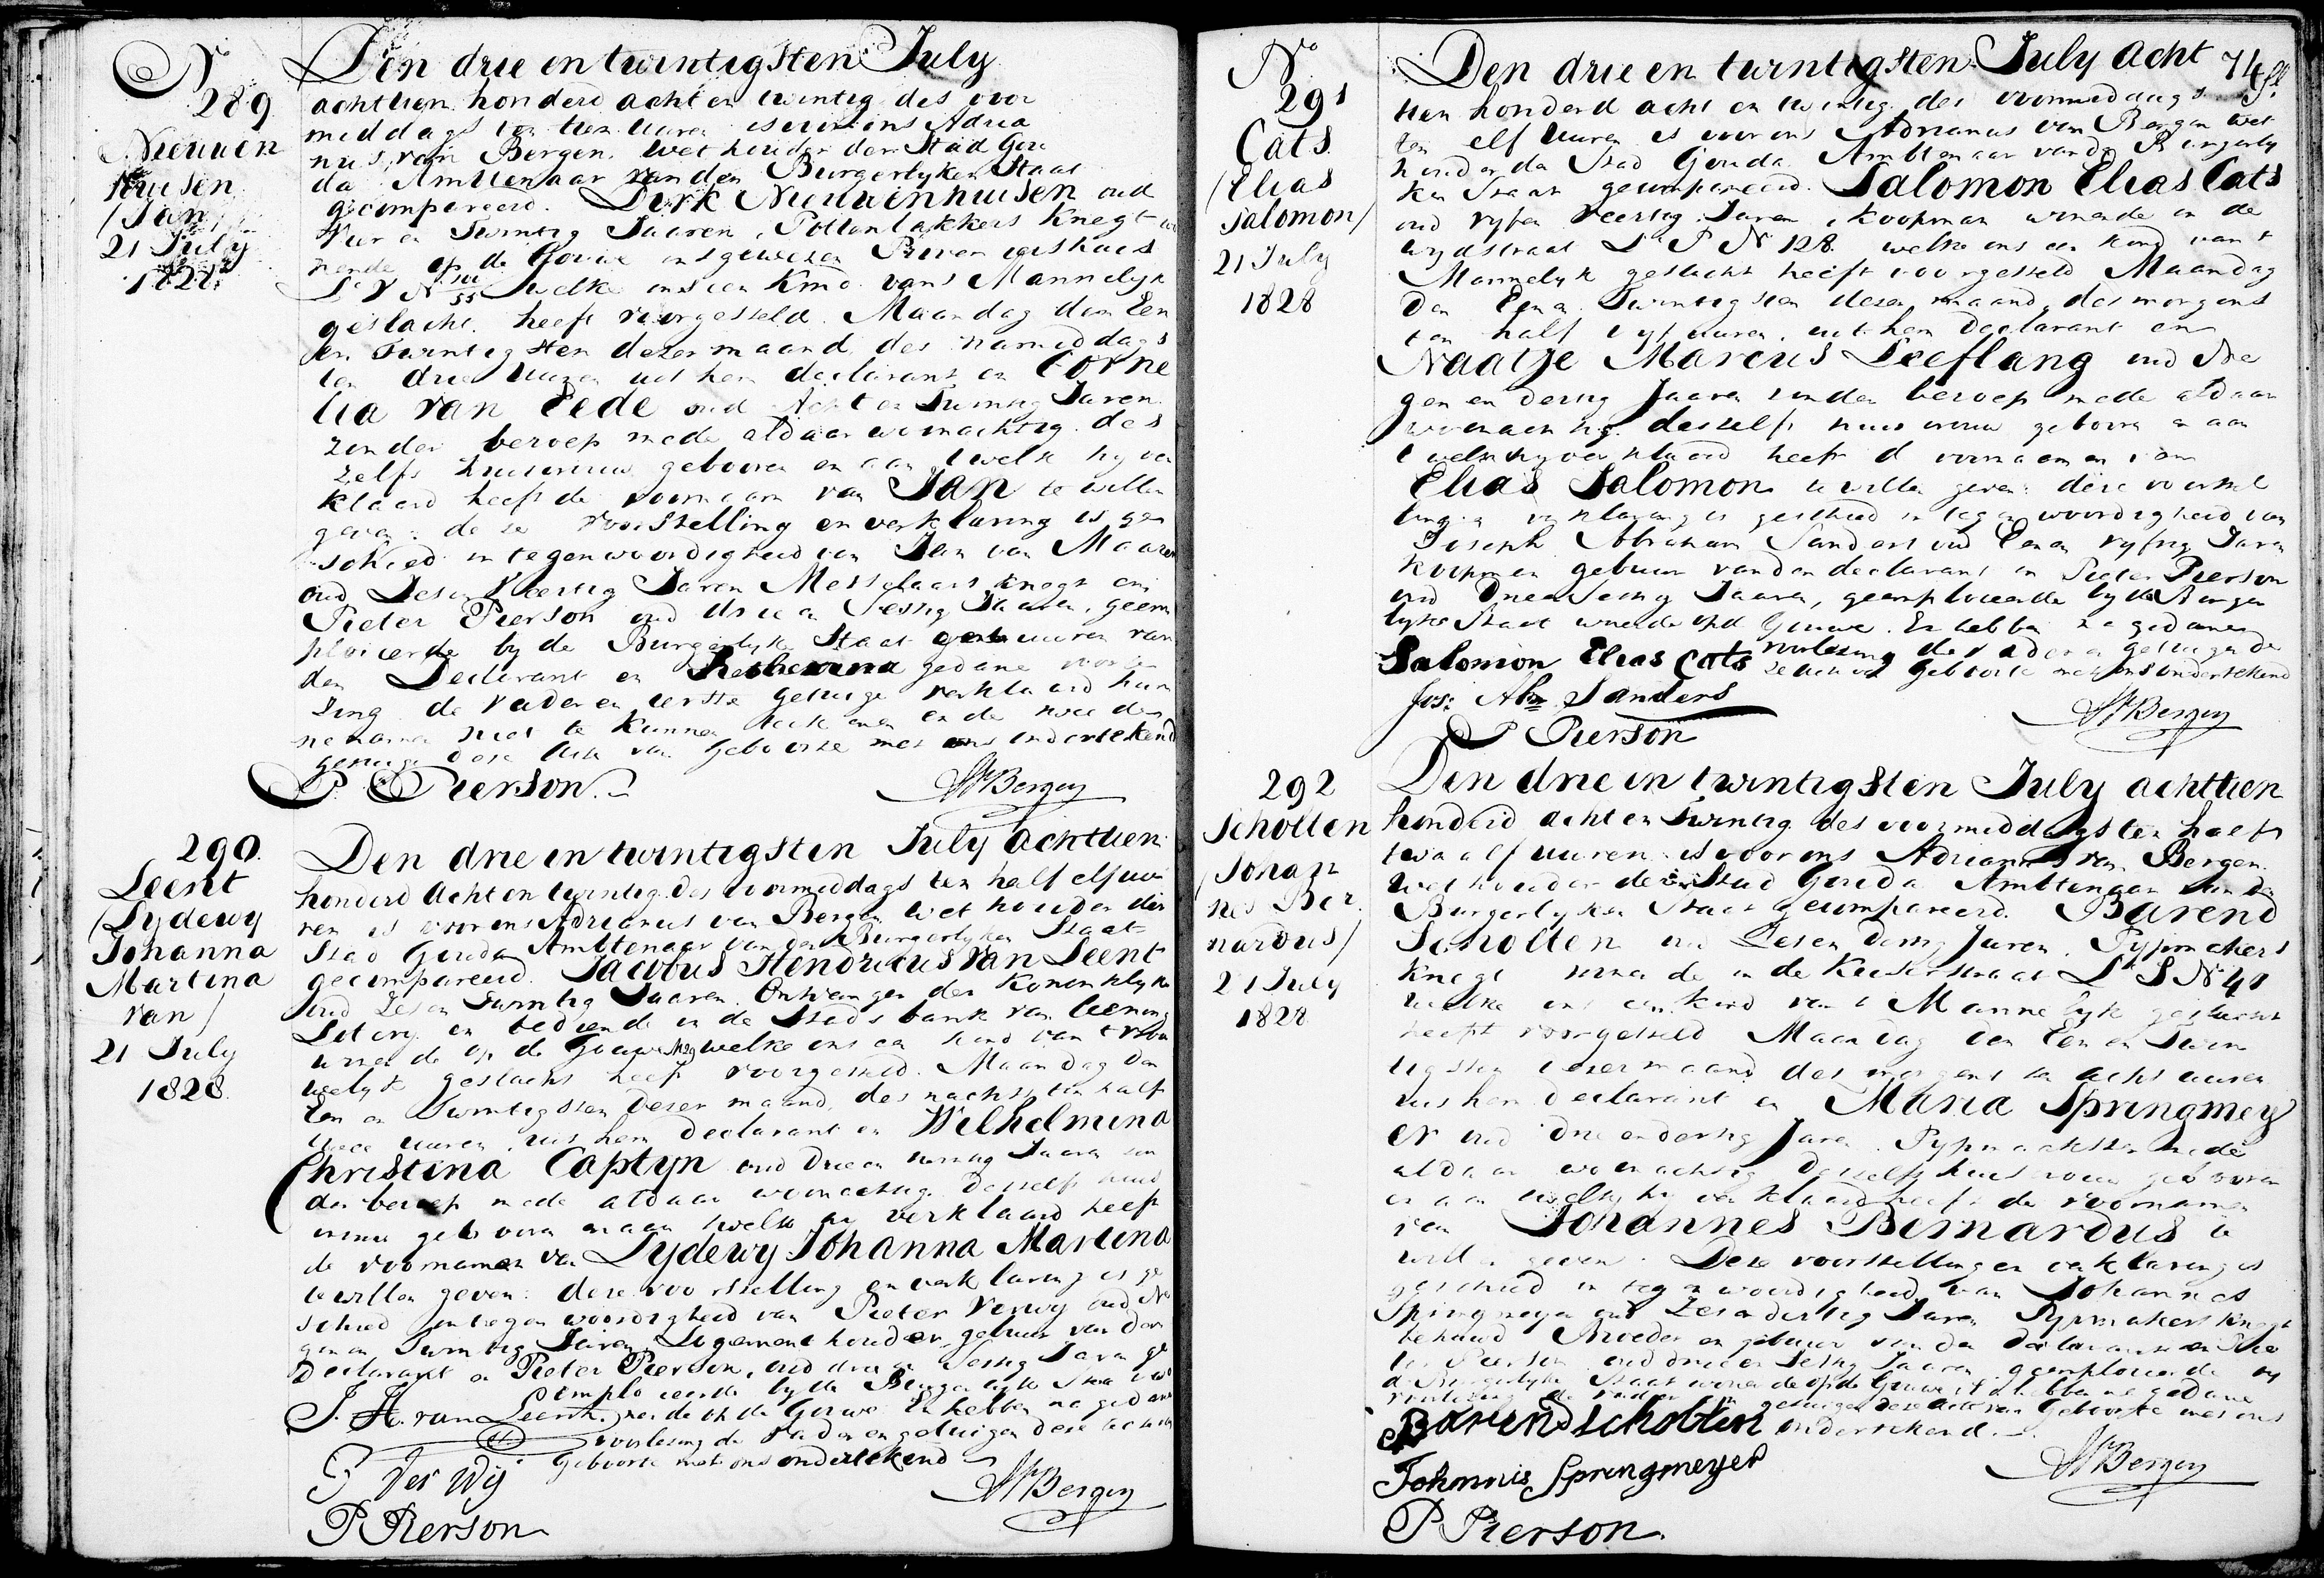 No
289
Nieuwen
huisen
/Jan/
21 July
1828
Den drie en twintigsten July
achttien honderd acht en twintig des voor
middags ten tien uuren is voor ons Adria
nus van Bergen Wethouder der Stad Gou
da Ambtenaar van den Burgerlyken Staat
gecompareerd. Dirk Nieuwenhuisen oud
Vier en Twintig Jaaren, Pottenbakkers Knegt wo
nende op de Gouwe
welke ons een Kind van t Mannelyk
geslacht heeft voorgesteld Maandag den Een
en Twintigsten dezer maand des namiddags
ten drie Uuren uit hem declarant en Corne
lia van Eede oud Acht en Twintig Jaren
zonder beroep mede aldaar woonachtig des
zelfs huisvrouw gebooren en aan t welk hy ver
klaard heeft de voornaam van Jan te willen
geven: deze voorstelling en verklaring is ge
schied in tegenwoordigheid van Jan van
oud Zes en Veertig Jaren Metselaars knegt en
Pieter Pierson oud drie en Sestig Jaaren, geem
ploieerde by de Burgerlyke Staat gebuuren van
den Declarant en gedane voorle
zing de Vader en eerste getuige verklaard hun
ne namen niet te kunnen teekenen en de tweede
getuige deze Acte van Geboorte met ons ondertekend
P Pierson
AvBergen
290.
Leent
/Lydewy
Johanna
Martina
van/
21 July
1828
Den drie en twintigsten July achttien
honderd acht en twintig des voormiddags ten half elf uu
ren is voor ons Adrianus van Bergen Wethouder der
Stad Gouda Ambtenaar van den Burgerlyken Staat
gecompareerd. Jacobus Hendricus van Leent
oud Zes en Twintig Jaaren. Ontvanger der Koninklyke
Lotery en bediende in de Stads bank van leening
wonende op de Gouwe welke ons een kind van t vrou
welyk geslacht heeft voorgesteld. Maandag den
Een en Twintigsten dezer maand, des nachts ten half
twee uuren uit hem Declarant en Wilhelmina
Christina Captyn oud Drie en Jaaren zon
der beroep mede aldaar woonachtig deszelfs huis
vrouw gebooren en aan t welk hy verklaard heeft
de voornamen van Lydewy Johanna Martina
te willen geven: deze voorstelling en verklaring is ge
schied in tegenwoordigheid van Pieter Verwy oud Ne
gen en Twintig Jaren Logement houder, gebuur van den
Declarant en Pieter Pierson, oud drie en Sestig Jaren ge
emploieerde by de Burgerlyke Staat wo
J. H. van Leent. nende op de Gouwe En hebben na gedane
voorlesing de Vader en getuigen deze acte van
Geboorte met ons ondertekend
P Ver Wij
AvBergen
P Pierson
No
291
Cats
/Elias
Salomon/
21 July
1828
74
Den drie en twintigsten July Acht
tien honderd acht en twintig des voormiddags
ten elf uuren is voor ons Adrianus van Bergen Wet
houder der Stad Gouda Ambtenaar van de Burgerly
ken Staat gecompareerd. Salomon Elias Cats
oud vyf en Veertig Jaren, Koopman wonende in de
wydstraat Lr P No 128 welke ons een kind van t
Mannelyk geslacht heeft voorgesteld Maandag
den Een en Twintigsten dezer maand des morgens
ten half vyf uuren, uit hem Declarant en
Naatje Marcus Leeflang oud Ne
gen en dertig Jaaren zonder beroep mede aldaar
woonachtig deszelfs huisvrouw gebooren en aan
t welk hy verklaard heeft de voornaamen van
Elias Salomon te willen geven: deze voorstel
ling en verklaring is geschied in tegenwoordigheid van
Joseph Abraham Sanders oud Een en vyftig Jaren
Koopman gebuur van den declarant en Pieter Pierson
oud Drie en Sestig Jaaren, geemploieerde by de Burger
lyke Staat wonende op de Gouwe. En hebben na gedane
voorlesing de Vader en getuigen de
Salomon Elias Cats ze acte van Geboorte met ons ondertekend
Jos: Abm Sanders
AvBergen
P Pierson
292
Scholten
/Johan
nes Ber
nardus/
21 July
1828
Den drie en twintigsten July achttien
honderd acht en Twintig des voormiddags ten half
twaalf uuren is voor ons Adrianus van Bergen
Wethouder der Stad Gouda Ambtenaar van den
Burgerlyken Staat gecompareerd. Barend
Scholten oud Zes en Dertig Jaren, Pypmakers
knegt wonende in de Keizerstraat Lr S No 41
welke ons een kind van t Mannelyk geslacht
heeft voorgesteld Maandag den Een en Twin
tigsten dezer maand des morgens ten acht uuren
uit hem Declarant en Maria Springmey
er oud drie en dertig Jaren Pypmaakster mede
aldaar woonachtig deszelfs huisvrouw gebooren
en aan t welk hy verklaard heeft de voornamen
van Johannes Bernardus te
willen geven. Deze voorstelling en verklaring is
geschied in tegenwoordigheid van Johannes
Springmeyer oud Zes en dertig Jaren Pypmakers knegt
behuwd Broeder en gebuur van den declarant en Pie
ter Pierson oud drie en Sestig Jaaren geemploieerde by
de Burgerlyke Staat wonende op de Gouwe, En hebben na gedane
voorlezing de vader en getuigen deze acte van Geboorte met ons
Barend Scholten ondertekend.
Johannis Springmeyer
AvBergen
P Pierson